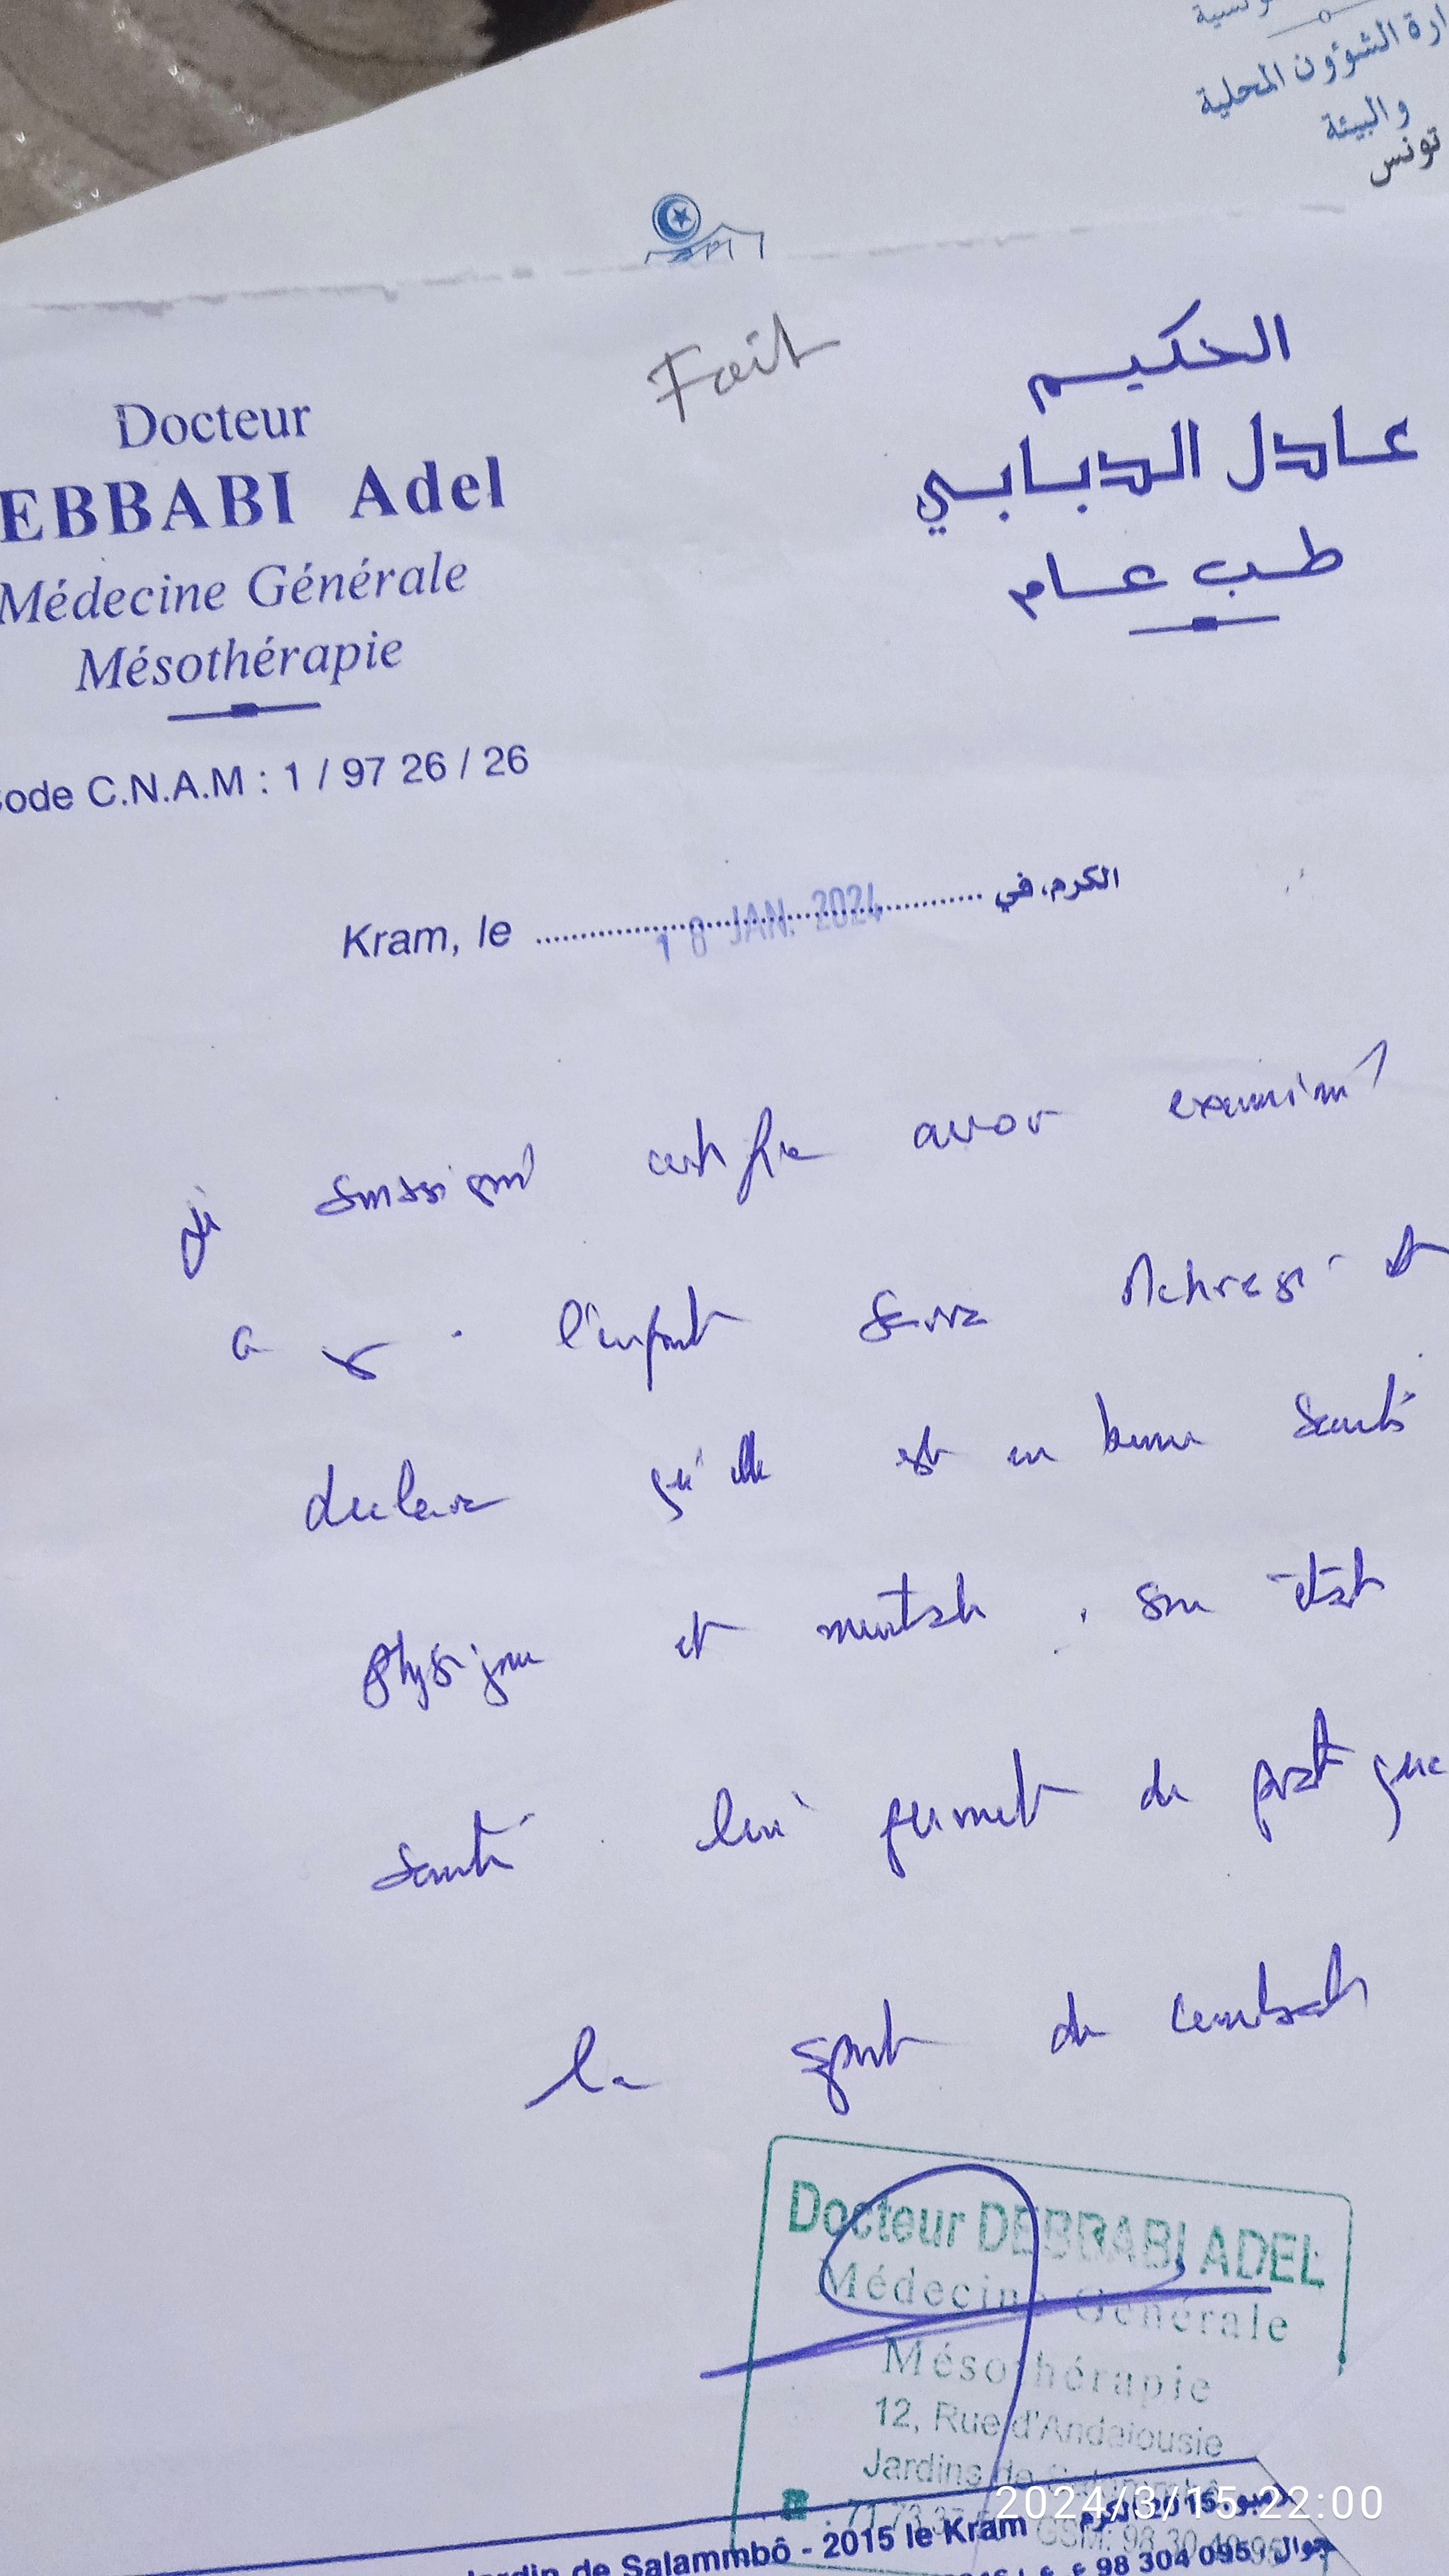 ارة الشؤون المحلية
والبيئة
تونس
Fait
Docteur
EBBABI Adel
Médecine Générale
Mésothérapie
ode C.N.A.M : 1 / 97 26 / 26
الحكيم
عادل الدبابي
طب عام
Kram, le 18 JAN. 2024 الكرم، في
je soussigné certifie avoir examiné
l'enfant et
declare qu'elle est en bonne santé
physique et mentale, son état
santé lui permet de pratique
le sport de combat
Docteur DEBBABI ADEL
Médecine Générale
Mésothérapie
12, Rue d'Andalousie
Jardins de
GSM: 98 30
2024/3/15 22:00
ardin de Salammbô - 2015 le Kram
98 304 095 : جوال